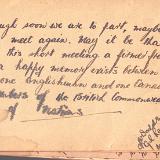 though soon we are to part, maybe
meet again. May it be tha
this short meeting a firmer frie
a happy memory exists between
one englishman and one Canad
members of the British Commonwea
of Nations